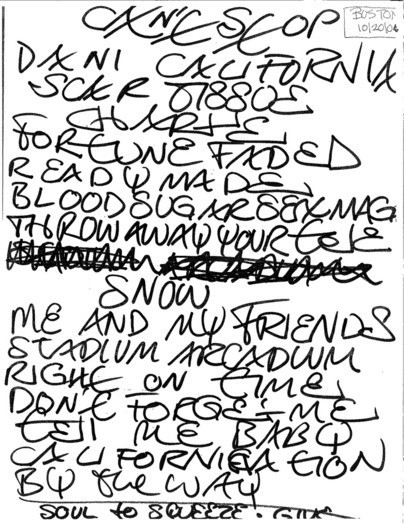 CAN'T STOP
BOSTON
10/20/06
DANI CALIFORNIA
SCAR TISSUE
CHARLIE
FORTUNE FADED
READYMADE
BLOODSUGARSEXMAG
THROW AWAY YOUR TELE
SNOW
ME AND MY FRIENDS
STADIUM ARCADIUM
RIGHT ON TIME
DON'T FORGET ME
TELL ME BABY
CALIFORNICATION
BY the WAY
SOUL to SQUEEZE.